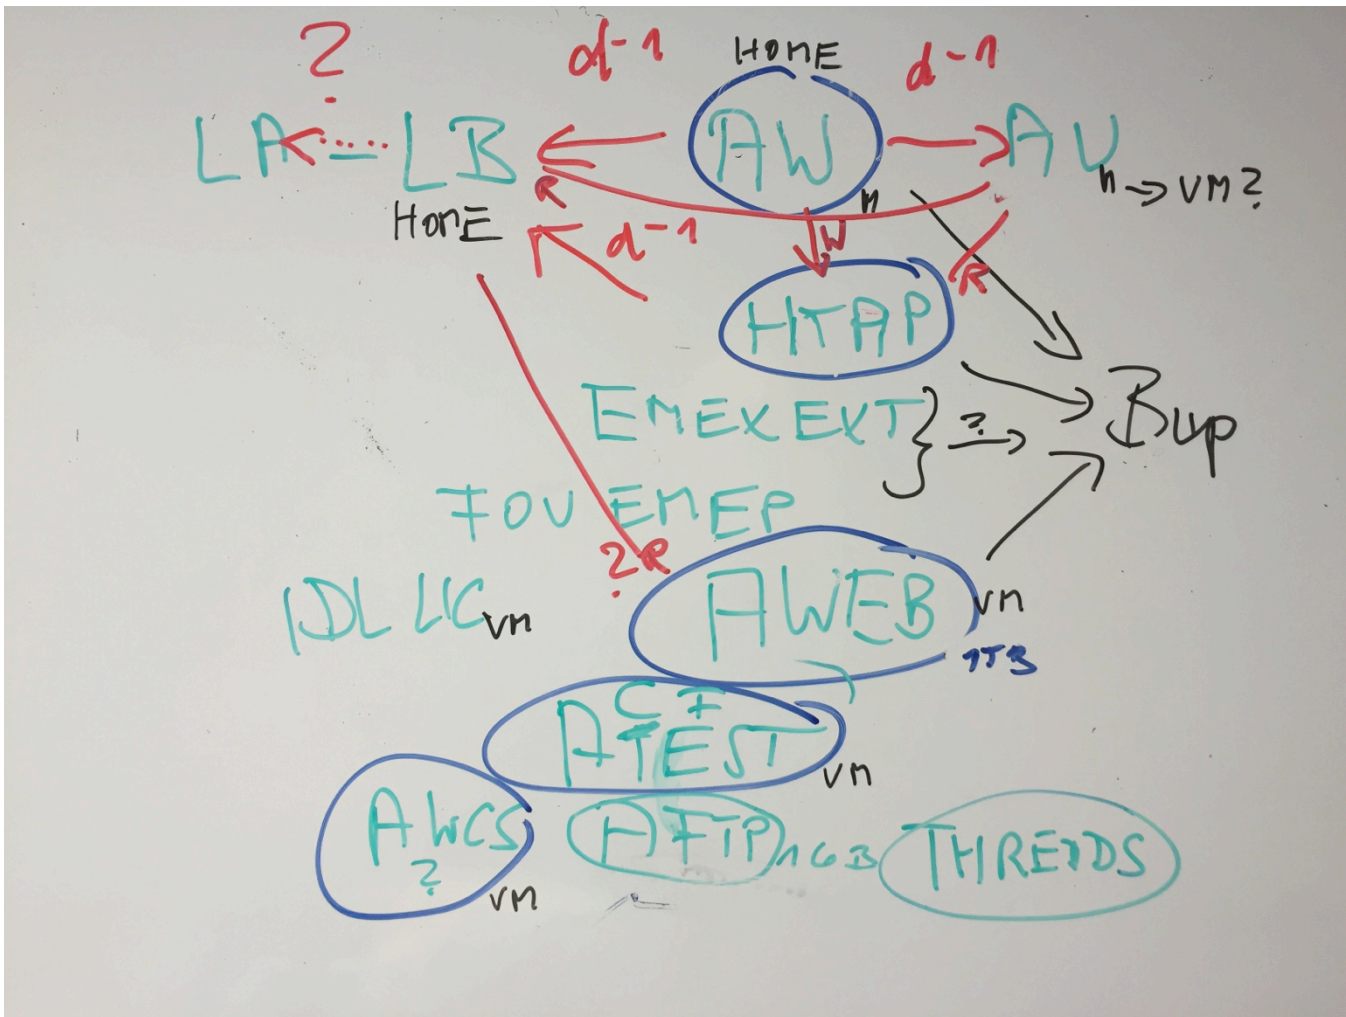 ?
d-1
HOME
d-1
LA
LB
AW
AU
n → VM?
HOME
R
d-1
n
W
R
HTAP
EMEXEXT
?
Bup
FOU EMEP
?R
IDL LIC
VM
AWEB
VM
1TB
CF
ATEST
VM
AWCS
?
VM
AFTP
1GB
THREDDS